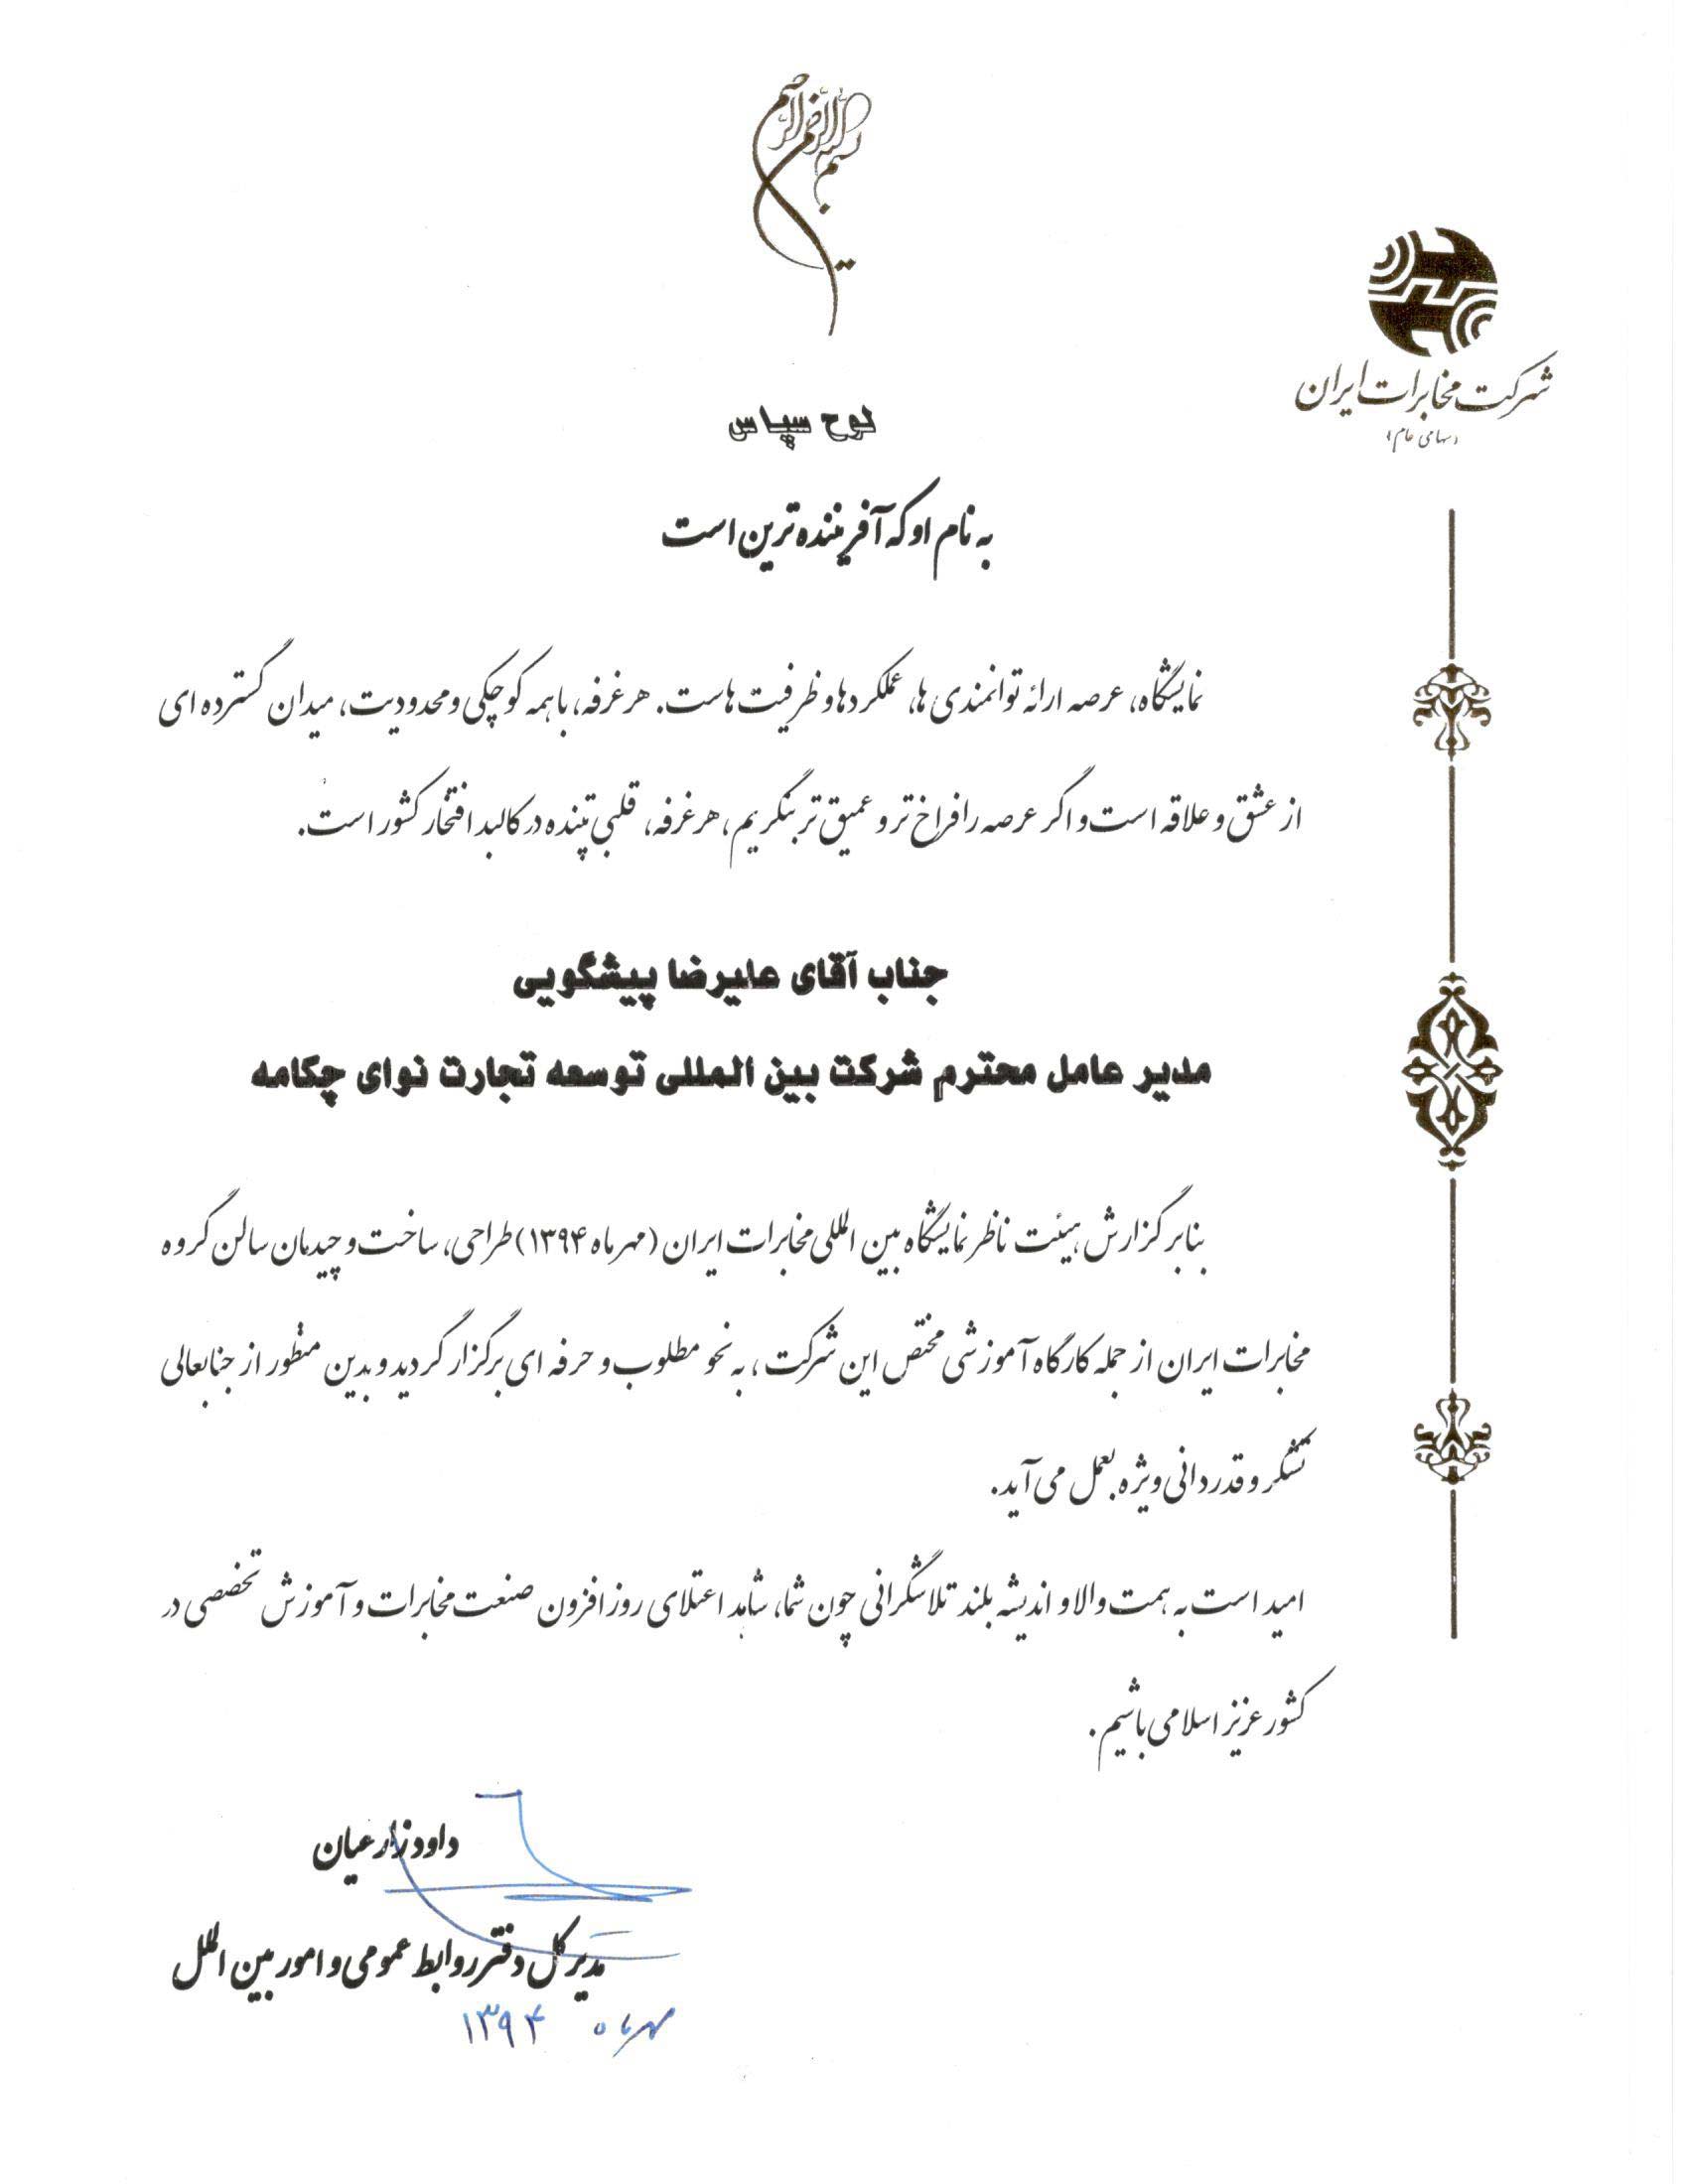 بسم الله الرحمن الرحیم
شرکت مخابرات ایران
(سهامی عام)
لوح سپاس
به نام او که آفریننده ترین است
نمایشگاه، عرصه ارائه توانمندی ها، عملکردها و ظرفیت هاست. هر غرفه، با همه کوچکی و محدودیت، میدان گسترده ای
از عشق و علاقه است و اگر عرصه را فراخ تر و عمیق تر بنگریم، هر غرفه، قلبی تپنده در کالبد افتخار کشور است.
جناب آقای علیرضا پیشگویی
مدیر عامل محترم شرکت بین المللی توسعه تجارت نوای چکامه
بنابر گزارش هیئت ناظر نمایشگاه بین المللی مخابرات ایران (مهرماه ۱۳۹۴) طراحی، ساخت و چیدمان سالن گروه
مخابرات ایران از جمله کارگاه آموزشی مختص این شرکت، به نحو مطلوب و حرفه ای برگزار گردید و بدین منظور از جنابعالی
تشکر و قدردانی ویژه بعمل می آید.
امید است به همت والا و اندیشه بلند تلاشگرانی چون شما، شاهد اعتلای روز افزون صنعت مخابرات و آموزش تخصصی در
کشور عزیز اسلامی باشیم.
داود زارعیان
مدیر کل دفتر روابط عمومی و امور بین الملل
مهرماه ۱۳۹۴